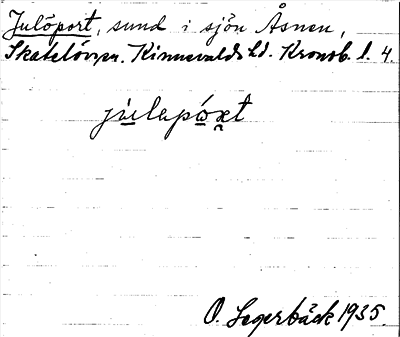 Julöport, sund i sjön Åsnen,
Skatelövs sn. Kinnevalds hd. Kronob. l. 4.
O. Segerbäck 1935.